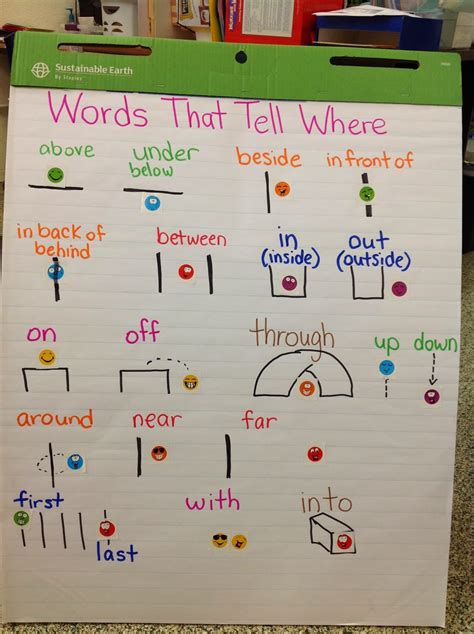 Sustainable Earth
By Staples
Words That Tell Where
above under below beside in front of
in back of behind between in (inside) out (outside)
on off through up down
around near far
first last with into